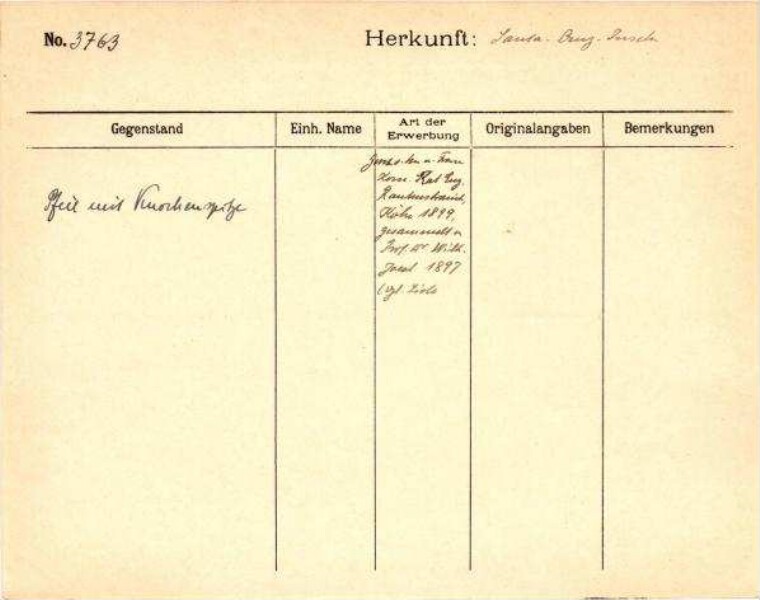 No. 3763
Herkunft: Santa-Cruz-Inseln
Gegenstand
Einh. Name
Art der
Erwerbung
Originalangaben
Bemerkungen
Pfeil mit Knochenspitze
Gesch. v. Hrn u. Frau
Kom. Rat Eug.
Rautenstrauch,
Köln 1899,
gesammelt v.
Prof. Dr Wilh.
Joest 1897
(vgl. Liste